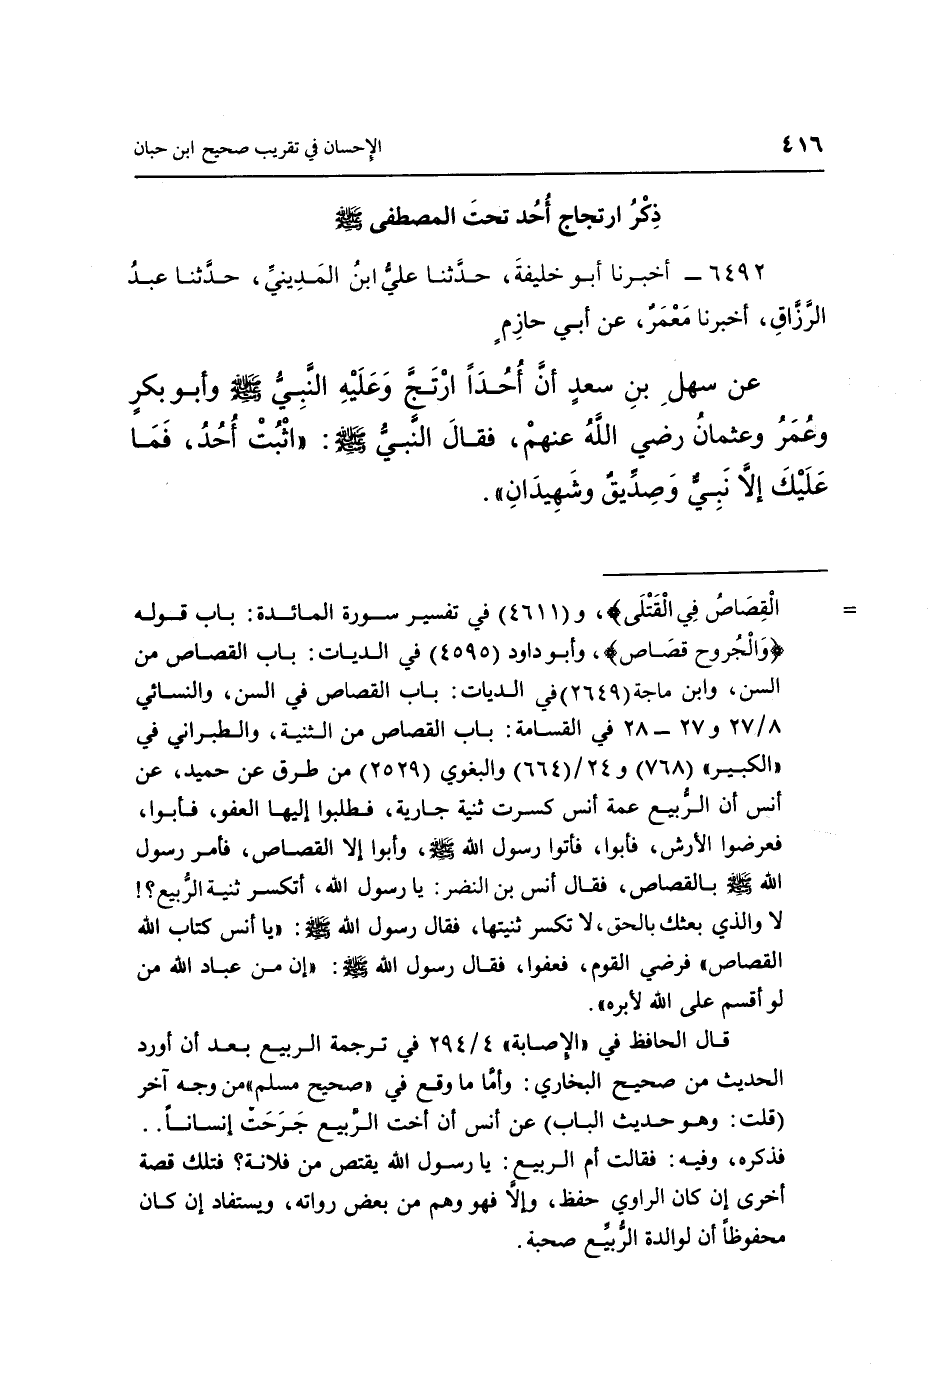 ٤١٦
الإحسان في تقريب صحيح ابن حبان
ذِكْرُ ارتجاج أُحُد تحتَ المصطفى ﷺ
٦٤٩٢ ـ أخبرنا أبو خليفةَ، حدَّثنا عليُّ ابنُ المَدِينيِّ، حدَّثنا عبدُ
الرَّزَّاقِ، أخبرنا مَعْمَرٌ، عن أبي حازِمٍ
عن سهلِ بنِ سعدٍ أنَّ أُحُدَاً ارْتَجَّ وَعَلَيْهِ النَّبِيُّ ﷺ وأبو بكرٍ
وعُمَرُ وعثمانُ رضي اللَّهُ عنهمْ، فقالَ النَّبيُّ ﷺ: «اثْبُتْ أُحُدُ، فَمَا
عَلَيْكَ إلاَّ نَبِيٌّ وَصِدِّيقٌ وشَهِيدَانِ».
= الْقِصَاصُ فِي الْقَتْلَى﴾، و(٤٦١١) في تفسير سورة المائدة: باب قوله
﴿وَالْجُروح قصَاص﴾، وأبو داود (٤٥٩٥) في الديات: باب القصاص من
السن، وابن ماجة (٢٦٤٩) في الديات: باب القصاص في السن، والنسائي
٢٧/٨ و٢٧ ـ ٢٨ في القسامة: باب القصاص من الثنية، والطبراني في
«الكبير» (٧٦٨) و٢٤/(٦٦٤) والبغوي (٢٥٢٩) من طرق عن حميد، عن
أنس أن الرُّبيع عمة أنس كسرت ثنية جارية، فطلبوا إليها العفو، فأبوا،
فعرضوا الأرش، فأبوا، فأتوا رسول الله ﷺ، وأبوا إلا القصاص، فأمر رسول
الله ﷺ بالقصاص، فقال أنس بن النضر: يا رسول الله، أتكسر ثنية الرُّبيع؟!
لا والذي بعثك بالحق، لا تكسر ثنيتها، فقال رسول الله ﷺ: «يا أنس كتاب الله
القصاص» فرضي القوم، فعفوا، فقال رسول الله ﷺ: «إن من عباد الله من
لو أقسم على الله لأبره».
قال الحافظ في «الإصابة» ٢٩٤/٤ في ترجمة الربيع بعد أن أورد
الحديث من صحيح البخاري: وأمَّا ما وقع في «صحيح مسلم» من وجه آخر
(قلت: وهو حديث الباب) عن أنس أن أخت الرُّبيع جَرَحَتْ إنساناً..
فذكره، وفيه: فقالت أم الربيع: يا رسول الله يقتص من فلانة؟ فتلك قصة
أخرى إن كان الراوي حفظ، وإلَّا فهو وهم من بعض رواته، ويستفاد إن كان
محفوظاً أن لوالدة الرُّبيِّع صحبة.